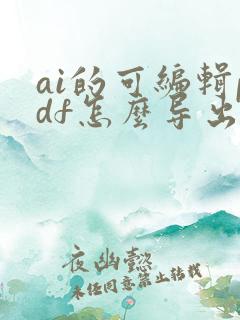 ai的可编辑p
df怎麽导出
夜幽懿
未经同意禁止转载